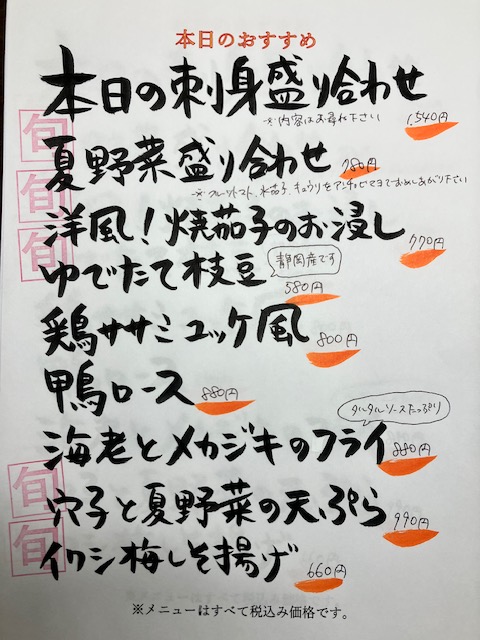 本日のおすすめ
本日の刺身盛り合わせ
※内容はお尋ね下さい
1,540円
旬
夏野菜盛り合わせ
780円
※フルーツトマト、水茄子、キュウリをアンチョビマヨでおめしあがり下さい
旬
洋風!焼茄子のお浸し
770円
旬
ゆでたて枝豆
静岡産です
580円
鶏ササミユッケ風
800円
鴨ロース
880円
タルタルソースたっぷり
海老とメカジキのフライ
880円
旬
穴子と夏野菜の天ぷら
990円
旬
イワシ梅しそ揚げ
660円
※メニューはすべて税込み価格です。